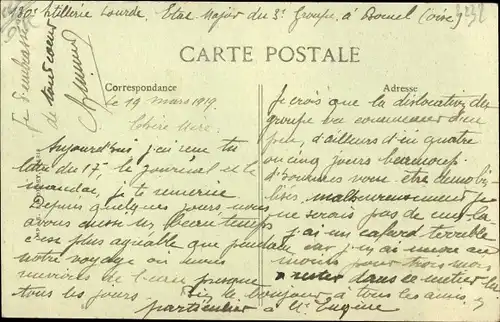 130e Artillerie Lourde. Etat Major du 3e Groupe, à Bornel (Oise)
CARTE POSTALE
Correspondance
le 19 mars 1919.
Chère Mère.
Aujourd'hui j'ai reçu ta
lettre du 17, le journal et le
mandat, je te remercie
Depuis quelques jours nous
avons aussi un beau temps
c'est plus agréable que pendant
notre voyage où nous
avions de l'eau presque
tous les jours.
Adresse
Je crois que la dislocation du
groupe va commencer d'un
peu, d'ailleurs d'ici quatre
ou cinq jours beaucoup
d'hommes vont être démobi-
lisés, malheureusement je
ne serais pas de ceux-là
j'ai un cafard terrible
car j'en ai encore au
moins pour trois mois
à rester dans ce métier là
Bien le bonjour à tous les amis, en
particulier à Mr Eugène
Je t'embrasse
de tout cœur